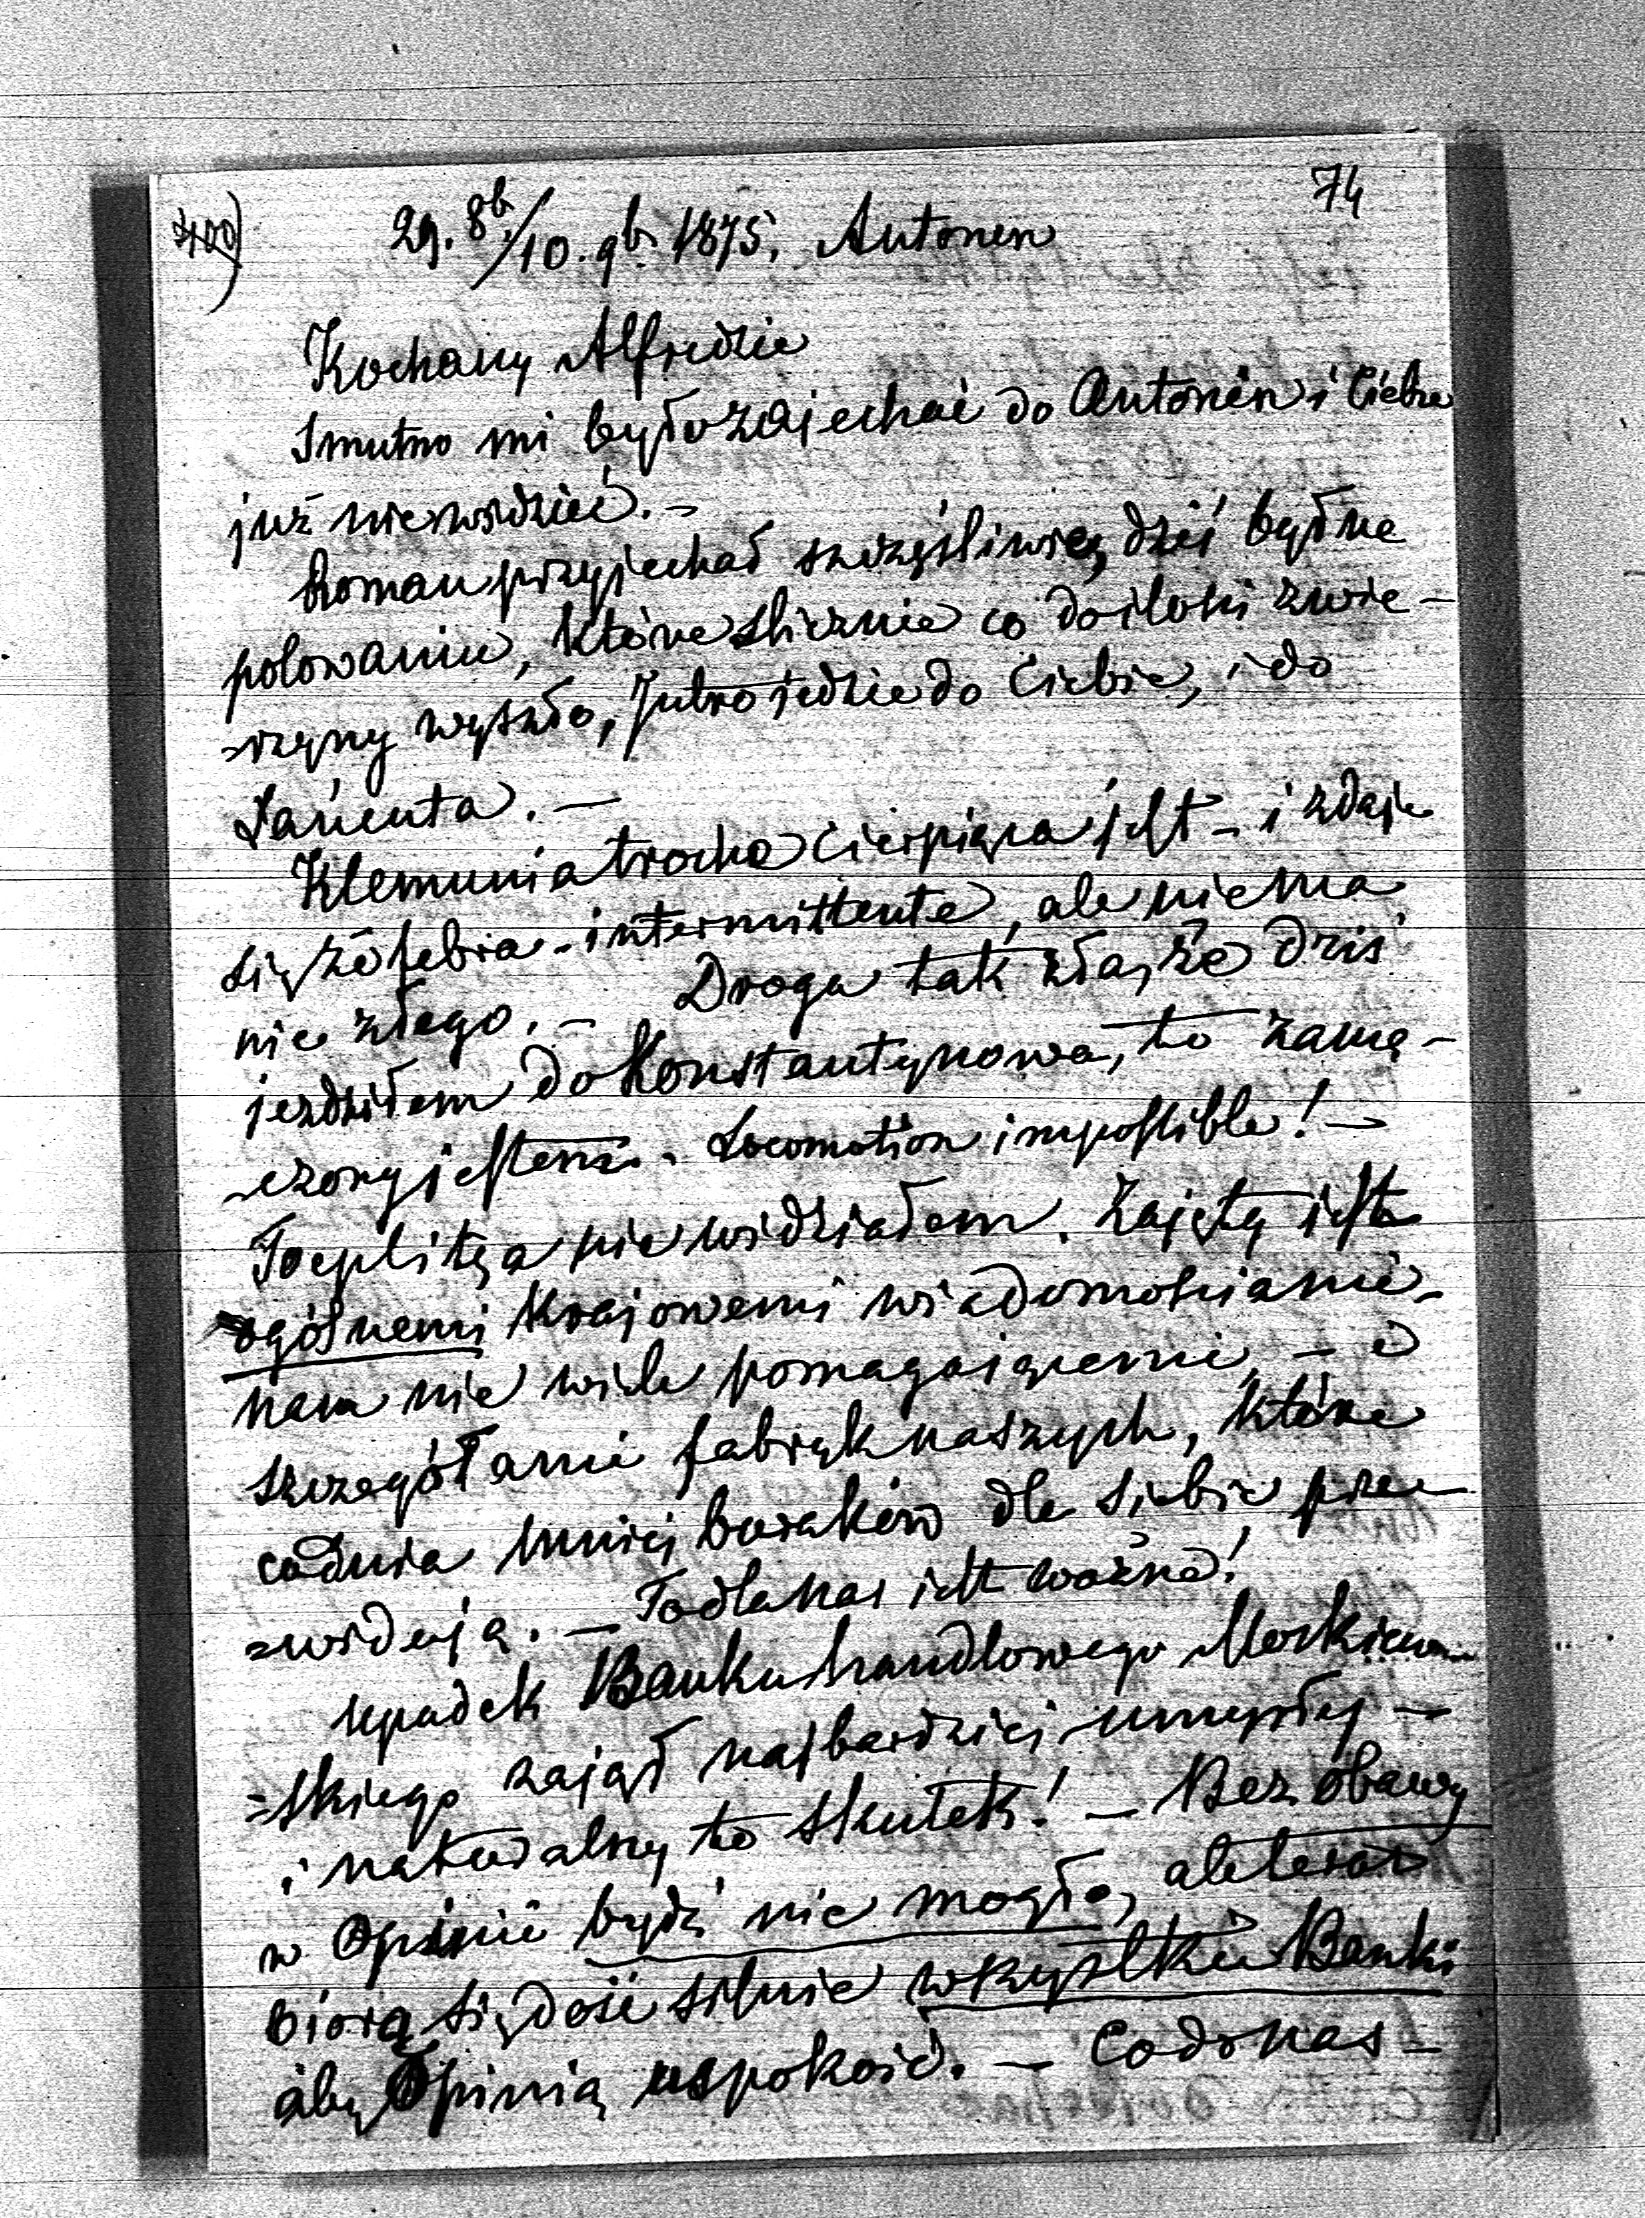 74
400)
29. 8b./10. 9b. 1875. Antonin
Kochany Alfredzie
Smutno mi było zajechać do Antonin i Ciebie
już niewidzieć. –
Roman przyjechał szczęśliwie, dziś był na
polowaniu, które ślicznie co do ilości zwie-
=rzyny wyszło, Jutro jedzie do Ciebie, i do
Łańcuta. –
Klemunia trocha cierpiąca jest – i zdaje
się że febra – intermittente, ale niema
nic złego. – Droga tak zła, że dziś
jezdziłem do Konstantynowa, to zamę-
-czony jestem. Locomotion impossible! –
Toeplitza nie widziałem. Zajęty jest
ogólnemi krajowemi wiadomościami –
nam nie wiele pomagaiącemi, – a
szczegółami fabryk naszych, które
codnia mniej buraków dla siebie prze-
=widują. – To dla nas jest ważne!
Upadek Banku handlowego Moskiew-
=skiego zajął najbardziej umysły –
i naturalny to skutek! – Bez obawy
w Opinii bydź nie mogło, ale teraz
biorą się dość silnie wszystkie Banki
aby Opinią uspokoić. – Co do nas –